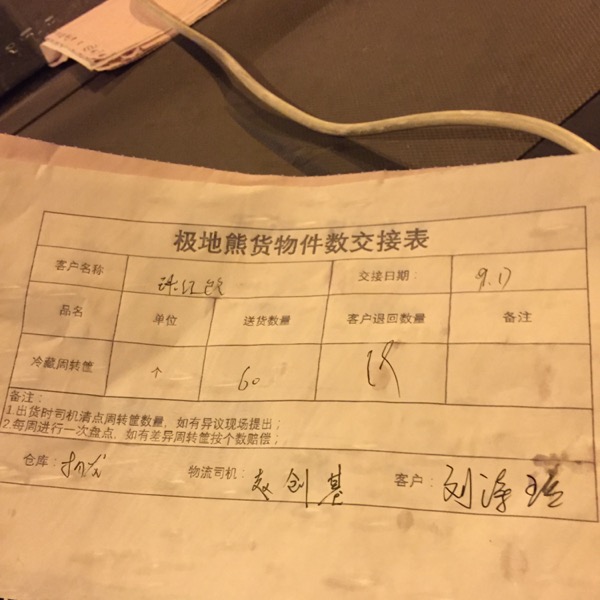 极地熊货物件数交接表
客户名称 珠江 交接日期： 9.17
品名 单位 送货数量 客户退回数量 备注
冷藏周转筐 个 60
备注：
1.出货时司机清点周转筐数量，如有异议现场提出；
2.每周进行一次盘点，如有差异周转筐按个数赔偿；
仓库： 物流司机： 赵创基 客户： 刘涛